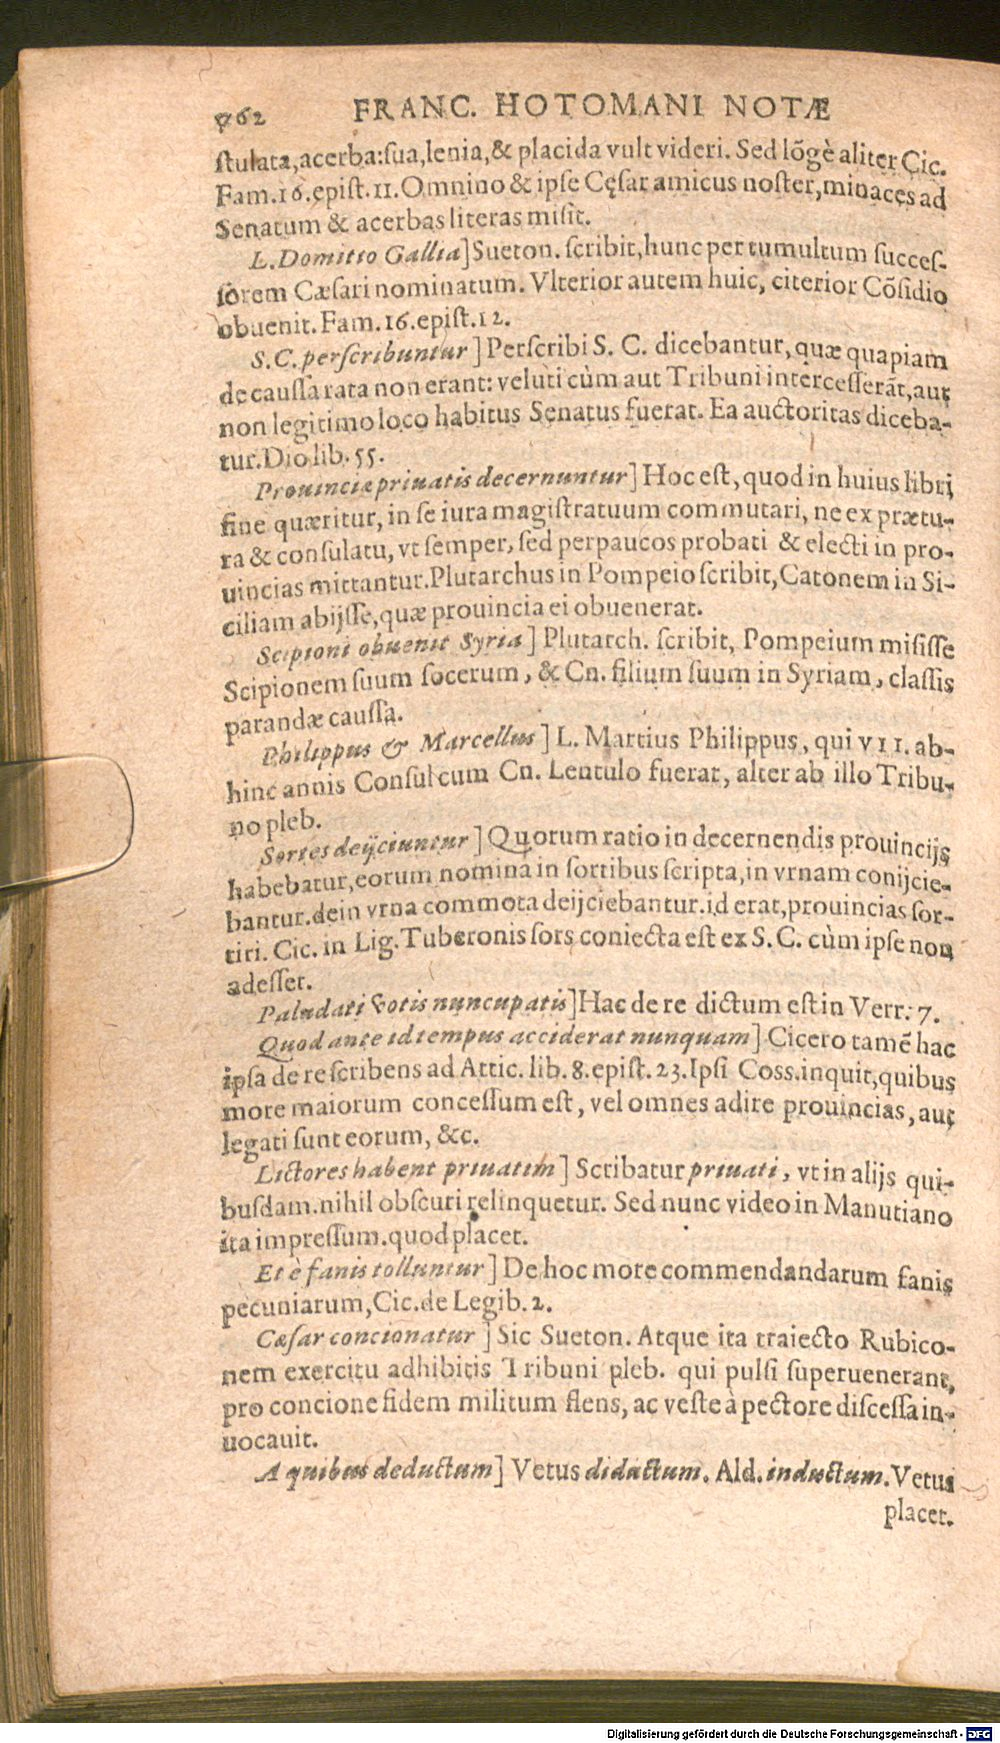 762 FRANC. HOTOMANI NOTÆ
ſtulata, acerba: ſua, lenia, & placida vult videri. Sed lõgè aliter Cic.
Fam. 16. epiſt. 11. Omnino & ipſe Cęſar amicus noſter, minaces ad
Senatum & acerbas literas miſit.
L. Domitio Gallia] Sueton. ſcribit, hunc per tumultum ſucceſ-
ſorem Cæſari nominatum. Vlterior autem huic, citerior Cõſidio
obuenit. Fam. 16. epiſt. 12.
S. C. perſcribuntur] Perſcribi S. C. dicebantur, quæ quapiam
de cauſſa rata non erant: veluti cùm aut Tribuni interceſſerãt, aut
non legitimo loco habitus Senatus fuerat. Ea auctoritas diceba-
tur. Dio lib. 55.
Prouinciæ priuatis decernuntur] Hoc eſt, quod in huius libri
fine quæritur, in ſe iura magiſtratuum commutari, ne ex prætu-
ra & conſulatu, vt ſemper, ſed perpaucos probati & electi in pro-
uincias mittantur. Plutarchus in Pompeio ſcribit, Catonem in Si-
ciliam abijſſe, quæ prouincia ei obuenerat.
Scipioni obuenit Syria] Plutarch. ſcribit, Pompeium miſiſſe
Scipionem ſuum ſocerum, & Cn. filium ſuum in Syriam, claſſis
parandæ cauſſa.
Philippus & Marcellus] L. Martius Philippus, qui VII. ab-
hinc annis Conſul cum Cn. Lentulo fuerat, alter ab illo Tribu-
no pleb.
Sortes deijciuntur] Quorum ratio in decernendis prouincijs
habebatur, eorum nomina in ſortibus ſcripta, in vrnam conijcie-
bantur. dein vrna commota deijciebantur. id erat, prouincias ſor-
tiri. Cic. in Lig. Tuberonis ſors coniecta eſt ex S. C. cùm ipſe non
adeſſet.
Paludati votis nuncupatis] Hac de re dictum eſt in Verr. 7.
Quod ante id tempus acciderat nunquam] Cicero tamē hac
ipſa de re ſcribens ad Attic. lib. 8. epiſt. 23. Ipſi Coſs. inquit, quibus
more maiorum conceſſum eſt, vel omnes adire prouincias, aut
legati ſunt eorum, &c.
Lictores habent priuatim] Scribatur priuati, vt in alijs qui-
buſdam. nihil obſcuri relinquetur. Sed nunc video in Manutiano
ita impreſſum. quod placet.
Et è fanis tolluntur] De hoc more commendandarum fanis
pecuniarum, Cic. de Legib. 2.
Cæſar concionatur] Sic Sueton. Atque ita traiecto Rubico-
nem exercitu adhibitis Tribuni pleb. qui pulſi ſuperuenerant,
pro concione fidem militum flens, ac veſte à pectore diſceſſa in-
uocauit.
A quibus deductum] Vetus didactum. Ald. inductum. Vetus
placet.
Digitalisierung gefördert durch die Deutsche Forschungsgemeinschaft - DFG